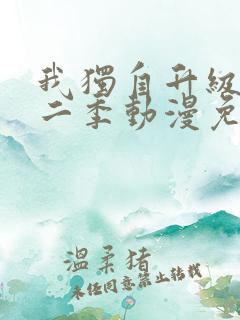 我獨自升級
二季動漫免
溫柔豬
未经同意禁止转载